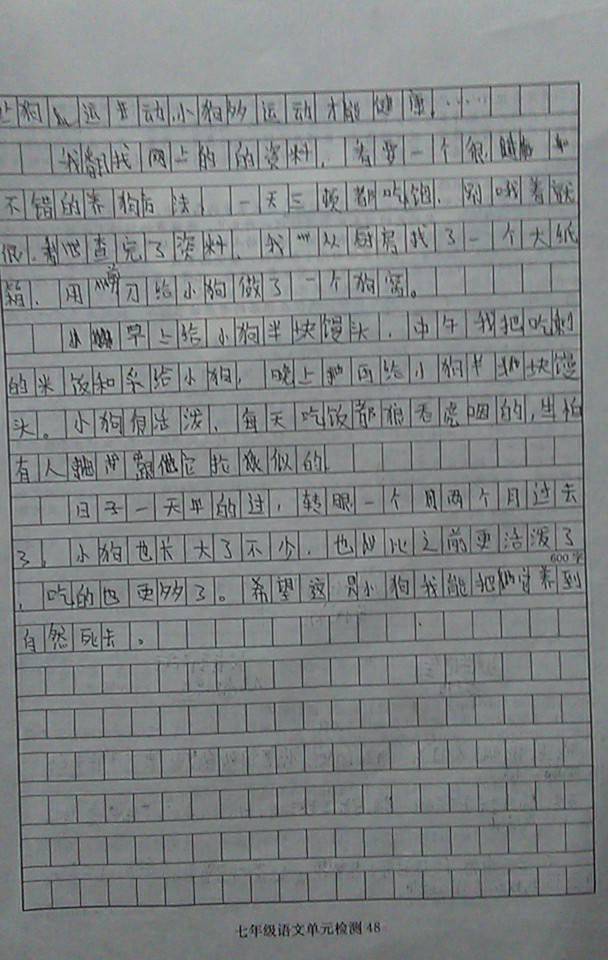 狗 运 动,小狗多运动才能健康……
我翻找网上的的资料,需要一个很
不错的养狗方法,一天三顿都吃饱,别饿着就
很,查完了资料,我从厨房找了一个大纸
箱,用剪刀给小狗做了一个狗窝。
早上给小狗半块馒头,中午我把吃剩
的米饭和菜给小狗,晚上 给小狗半块馒
头。小狗很活泼,每天吃饭都狼吞虎咽的,生怕
有人跟它抢食似的
日子一天天的过,转眼一个月两个月过去
了,小狗也长大了不少,也比之前更活泼了
600字
,吃的也更多了。希望这只小狗我能把它养到
自然死去。
七年级语文单元检测48